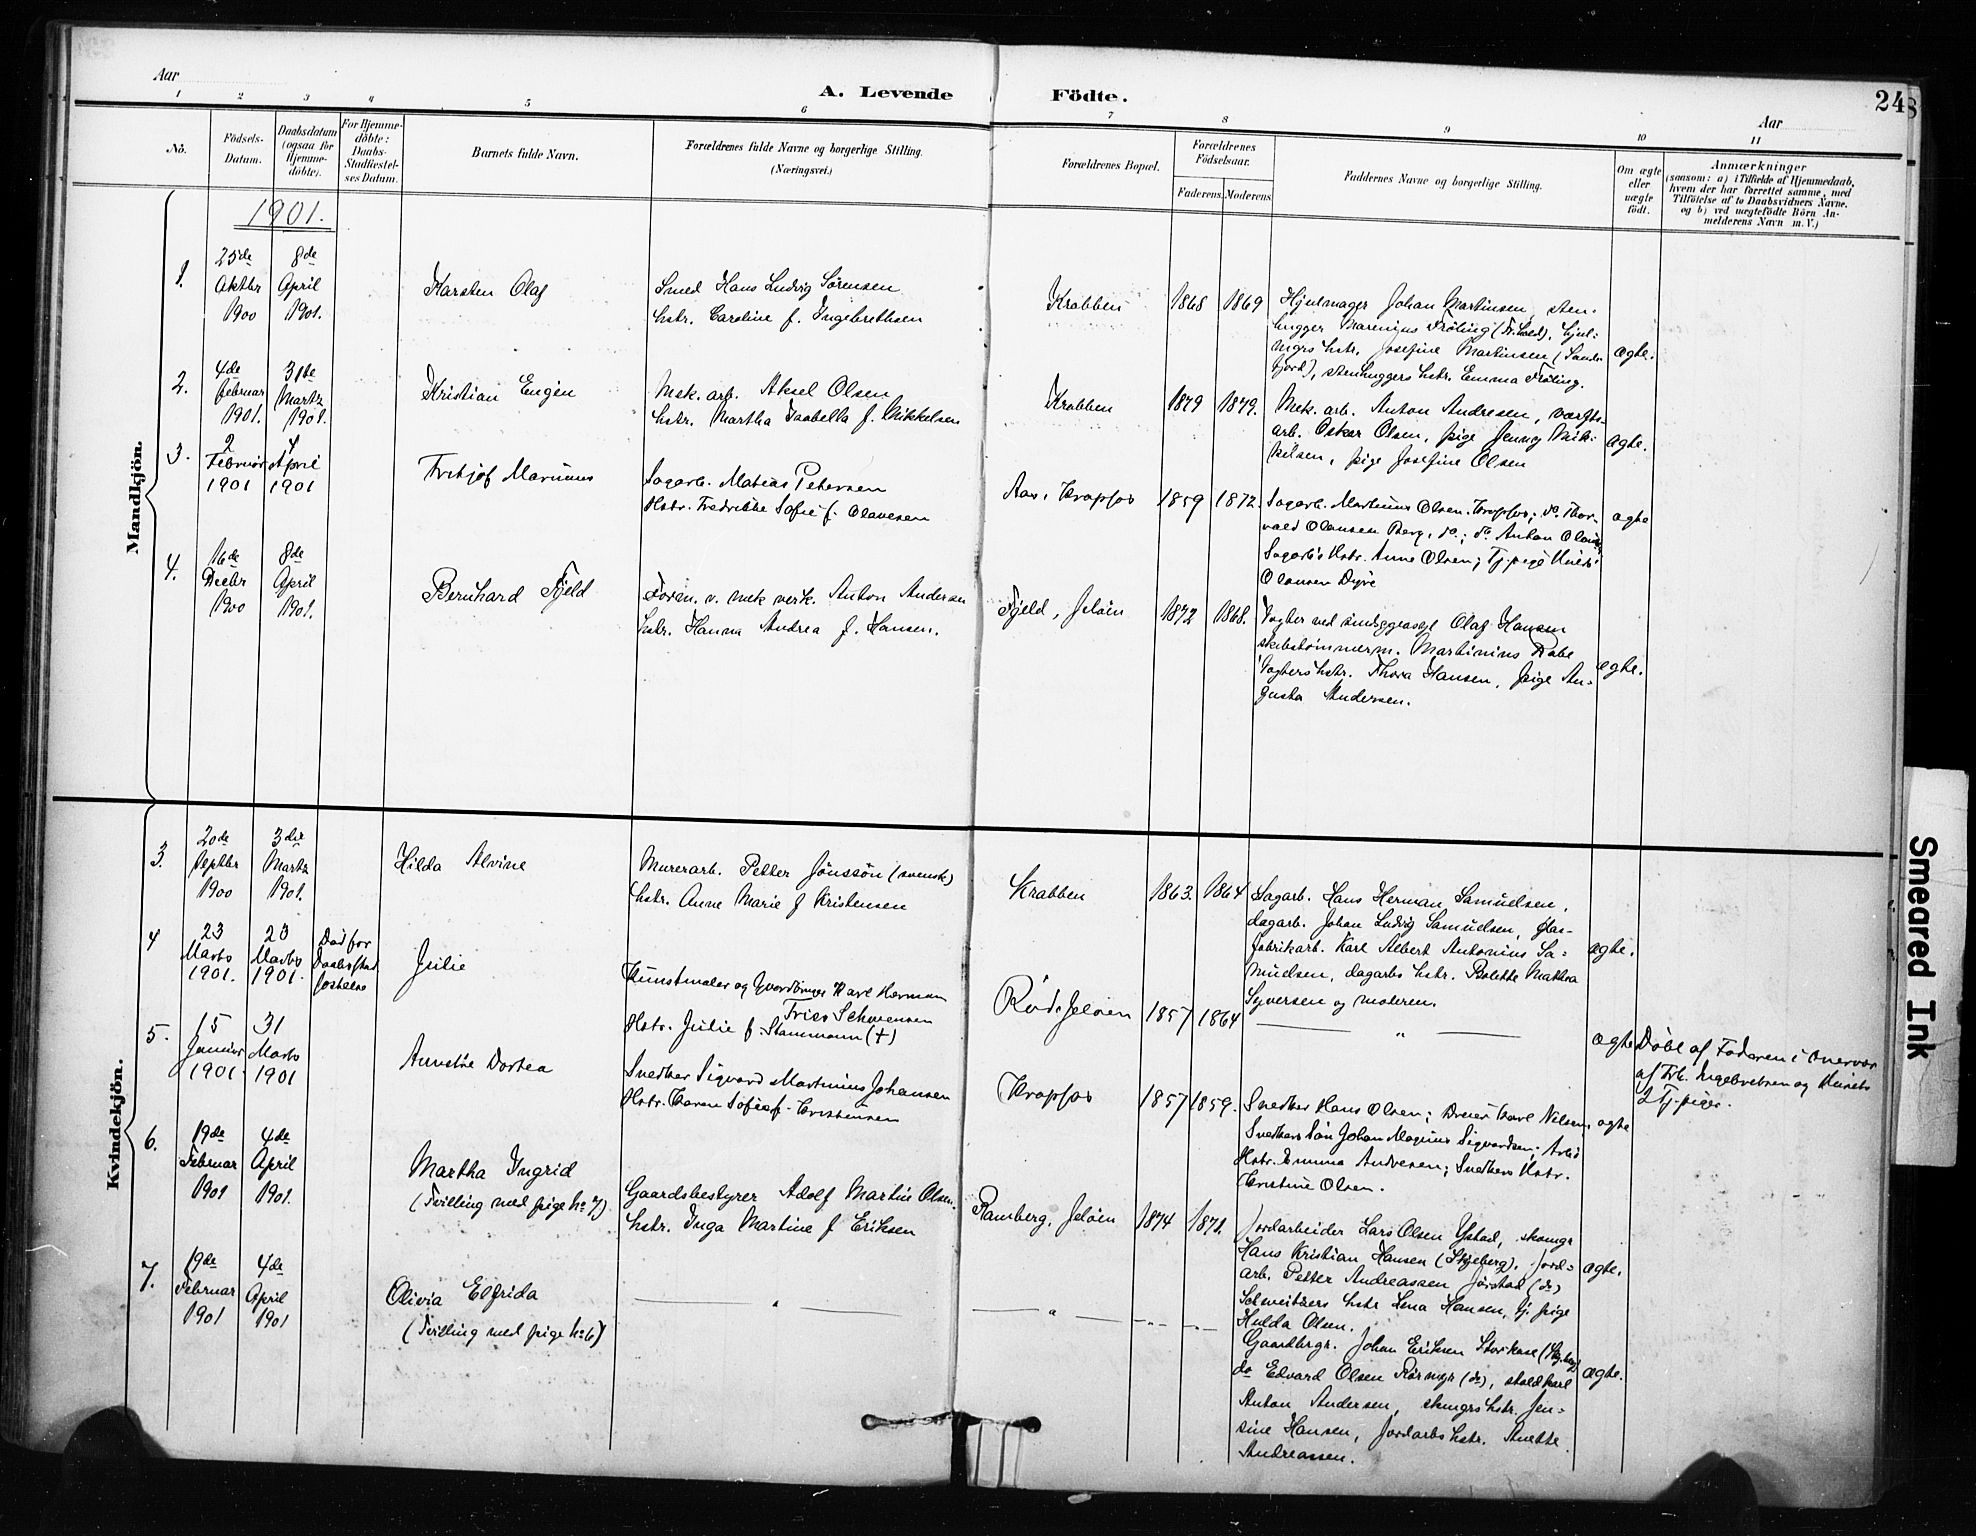 Aar
A. Levende Födte.
24
Aar
1 2 3 4 5 6 7 8 9 10 11
No.
Födsels-
Datum.
Daabsdatum
(ogsaa for
Hjemme-
döbte).
For Hjemme-
döbte:
Daabs-
Stadfæstel-
ses Datum.
Barnets fulde Navn.
Forældrenes fulde Navne og borgerlige Stilling.
(Næringsvei.)
Forældrenes Bopæl.
Forældrenes
Födselsaar.
Faderens. Moderens.
Faddernes Navne og borgerlige Stilling.
Om ægte
eller
uægte
födt.
Anmærkninger
(saasom: a) i Tilfælde af Hjemmedaab,
hvem der har forrettet samme, med
Tilföielse af to Daabsvidners Navne.
og b) ved uægtefödte Börn An-
melderens Navn m. V.)
1901.
Mandkjön.
1.
25de
Oktbr
1900
8de
April
1901.
Karsten Olaf
Smed Hans Ludvig Sørensen
hstr. Caroline f. Ingebrethsen
Krabben
1868 1869
Hjulmager Johan Martinsen, sten-
hugger Marenius Frøling (Fr.hald), hjul-
mgrs hstr. Josefine Martinsen (Sande-
fjord), stenhuggers hstr. Emma Frøling.
ægte.
2.
4de
Februar
1901.
31te
Marts
1901.
Kristian Eugen
Mek. arb. Aksel Olsen
hstr. Martha Isabella f. Mikkelsen
Krabben
1879 1879.
Mek. arb. Anton Andresen, værfts-
arb. Oskar Olsen, pige Jenny Mik-
kelsen, pige Josefine Olsen
ægte.
3.
2
Februar
1901
4
April
1901
Fritjof Marinus
Sagarb. Matias Petersen
Hstr. Fredrikke Sofie f. Olavesen
Aas, Krapfos
1859 1872
Sagarb. Martinus Olsen, Krapfos; do. Thor-
vald Olausen Berg, do.; do. Anton Olsen,
Sagarb's Hstr. Anne Olsen; Tj. pige
Olausen Dyre
ægte
4.
16de
Decbr
1900
8de
April
1901.
Bernhard Fjeld
Form. v. mek verk. Anton Andersen
hstr. Hanna Andrea f. Hansen.
Fjeld, Jeløen
1872 1868.
Vogter ved sindsygeasyl Olaf Hansen
skibstømmerm. Martinius
Vogters hstr. Thora Hansen, pige Au-
gusta Andersen.
ægte.
Kvindekjön.
3.
20de
Septbr
1900
3die
Marts
1901.
Hilda Alvine
Murerarb. Petter Jönssön (svensk)
hstr. Anne Marie f Kristensen
Krabben
1863. 1864
Dagarb. Hans Herman Samuelsen,
dagarb. Johan Ludvig Samuelsen, glas-
fabrikarb. Karl Albert Antonius Sa-
muelsen, dagarbs hstr. Bolette Mathea
Syversen og moderen.
ægte.
4
23
Marts
1901.
23
Marts
1901.
Død før
Daabsstad
fæstelse
Julie
Kunstmaler og Gaardbruger Karl Herman
Friis Schwensen
Hstr. Julie f. Stammann (+)
Rød. Jeløen
1857 1864
— " —
ægte
Døbt af Faderen i Overvær
af Frk. Ingebretsen og Husets
2 Tj. piger.
5.
15
Januar
1901.
31
Marts
1901
Annette Dortea
Snedker Sigvard Martinius Johansen
Hstr. Karen Sofie f. Kristensen
Krapfos
1857 1859.
Snedker Hans Olsen; Dreier Karl Nilsen,
Snedkers Søn Johan Magnus Sigvardsen; Arbs
Hstr. Emma Andresen; Snedkers Hstr.
Kristine Olsen.
ægte
6.
19de
Februar
1901
4de
April
1901.
Martha Ingrid
(Tvilling med pige No 7)
Gaardsbestyrer Adolf Martin Olsen.
hstr. Inga Martine f Eriksen
Ramberg, Jeløen
1874 1871.
Jordarbeider Lars Olsen Ystad, skomgr
Hans Kristian Hansen (Skjeberg), jord-
arb. Petter Andreassen Jørstad (do)
Schweitsers hstr Lena Hansen, tj. pige
Hulda Olsen.
ægte.
7.
19de
Februar
1901
4de
April
1901
Olivia Elfrida
(Tvilling med pige No 6)
— " —
— " —
Gaardbrgr. Johan Eriksen (Skjeberg)
do Edvard Olsen (do), staldkarl
Anton Andersen, skmgrs hstr. Jen-
sine Hansen, Jordarbs hstr. Anette
Andreassen.
ægte.
Smeared Ink